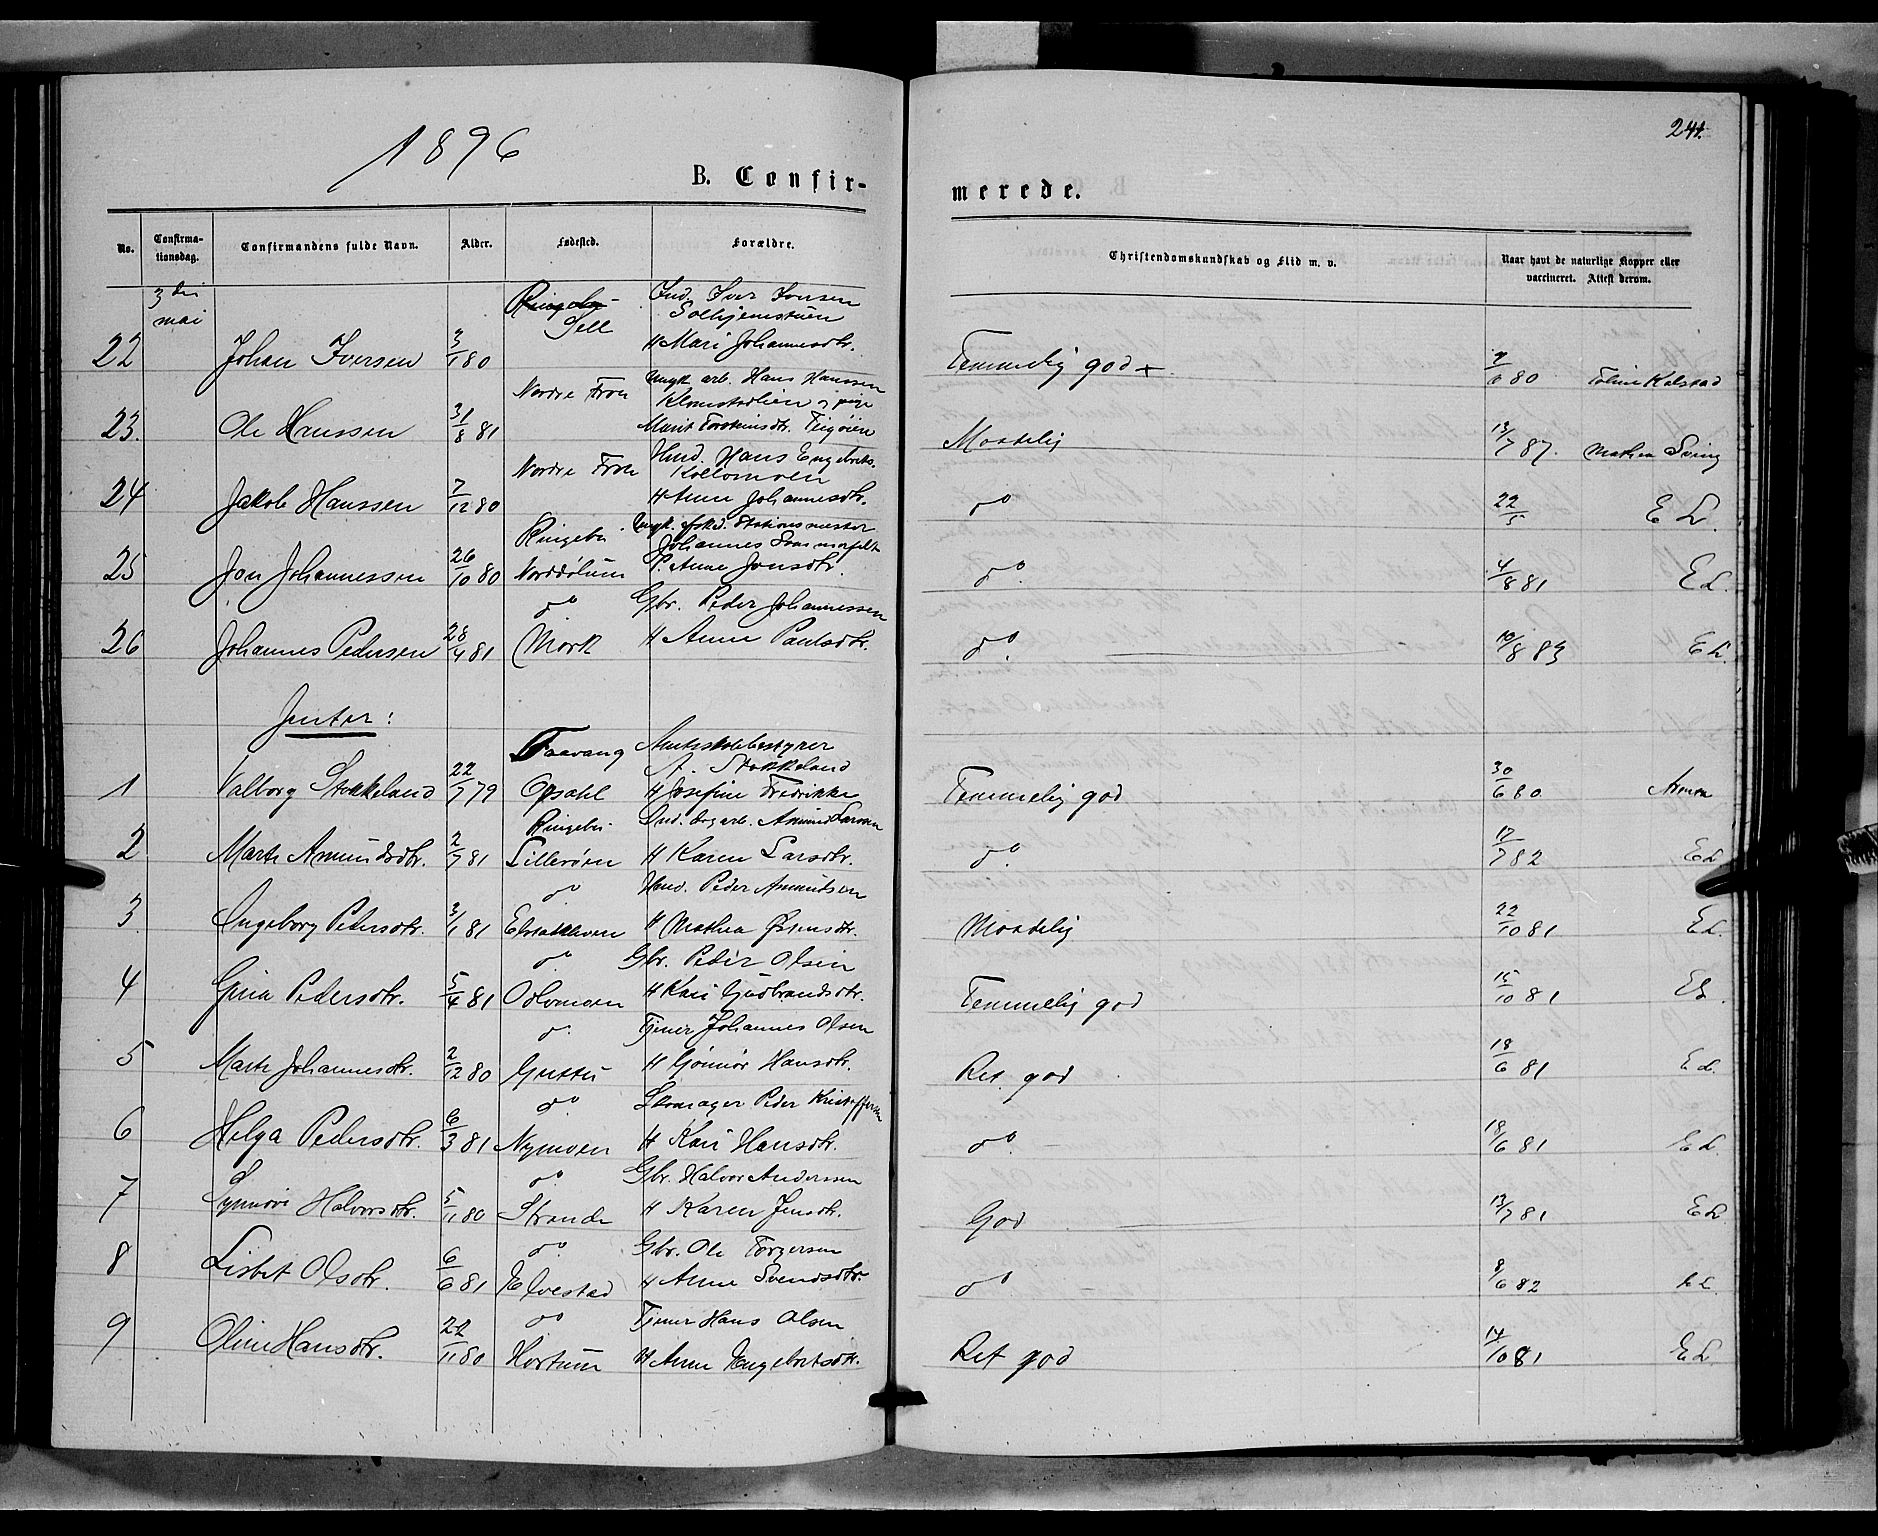 1896
241.
B. Confir-
merede.
No.
Confirma-
tionsdag.
Confirmandens fulde Navn.
Alder.
Fødested.
Forældre.
Christendomskundskab og Flid m. v.
Naar havt de naturlige Kopper eller
vaccineret. Attest derom.
3 die
mai
Ringebu
Sell
Ind. Iver Iversen
Solhjemstuen
22 Johan Iversen 3/1 80 H Mari Johannesdtr. Temmelig god + 80 Kalstad
Nordre Fron
Ungk. arb. Hans Hanssen
Klomstadlien og pige
23. Ole Hanssen 31/8 81 Marit Torsteinsdtr. Teigøien Maadelig 13/7 87. Mathea Sving
Nordre Fron
Hmd. Hans Engebrets.
24 Jakob Hanssen 7/12 80 H Anne Johannesdtr. do 22/5 E L.
Ringebu
Ungk. Stationsmester
Johannes
25 Jon Johannessen 26/10 80 P. Anne Jonsdtr. do. 4/8 81 E L.
do
Gbr. Peder Johannessen
26 Johannes Pedersen 28/4 81 Mork H Anne Paulsdtr. do. 10/8 83 E L.
Jenter:
Faavang
Amtsskolebestyrer
A. Stokkeland
1 Valborg Stokkeland 22/7 79 Opsahl H Josefine Fredrikke Temmelig god 30/6 80
Ringebu
Ind. dagarb. Amund Larsen
2 Marte Amundsdtr. 2/7 81 Lillerøen H Karen Larsdtr. do. 17/7 82 E L
do
Hmd. Peder Amundsen
3. Ingeborg Pedersdtr. 3/1 81 H Mathea Østensdtr. Maadelig 22/10 81 E L.
do.
Gbr. Peder Olsen
4 Gina Pedersdtr. 5/4 81 Odlomoen H Kari Gudbrandsdtr. Temmelig god 15/10 81 E L.
do.
Tjener Johannes Olsen
5 Marte Johannesdtr. 2/12 80 H Gønnor Hansdtr. Ret god 18/6 81 E L.
do
Skomager Peder Kristoffersen
6 Helga Pedersdtr. 6/3 81 Nymoen H Kari Hansdtr. do. 18/6 81 E L.
do.
Gbr. Halvor Anderssen
7 Synnøve Halvorsdtr. 5/11 80 Strande H Karen Jensdtr. God 13/7 81 E L
do.
Gbr. Ole Torgersen
8 Lisbet Olsdtr. 6/6 81 Elvestad H Anne Svendsdtr. do 8/6 82 E L.
do
Tjener Hans Olsen
9 Oline Hansdtr. 22/11 80 Hortuen H Anne Engebretsdtr. Ret god 14/10 81 E L.